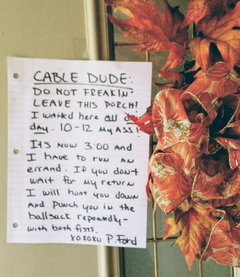 CABLE DUDE:
DO NOT FREAKIN'
LEAVE THIS PORCH!
I WAITED HERE ALL
DAY. 10-12 MY ASS!
IT'S NOW 3:00 AND
I HAVE TO RUN AN
ERRAND. IF YOU DON'T
WAIT FOR MY RETURN
I WILL HUNT YOU DOWN
AND PUNCH YOU IN THE
BALLSACK REPEATEDLY-
WITH BOTH FISTS.
XOXOXO P. FORD